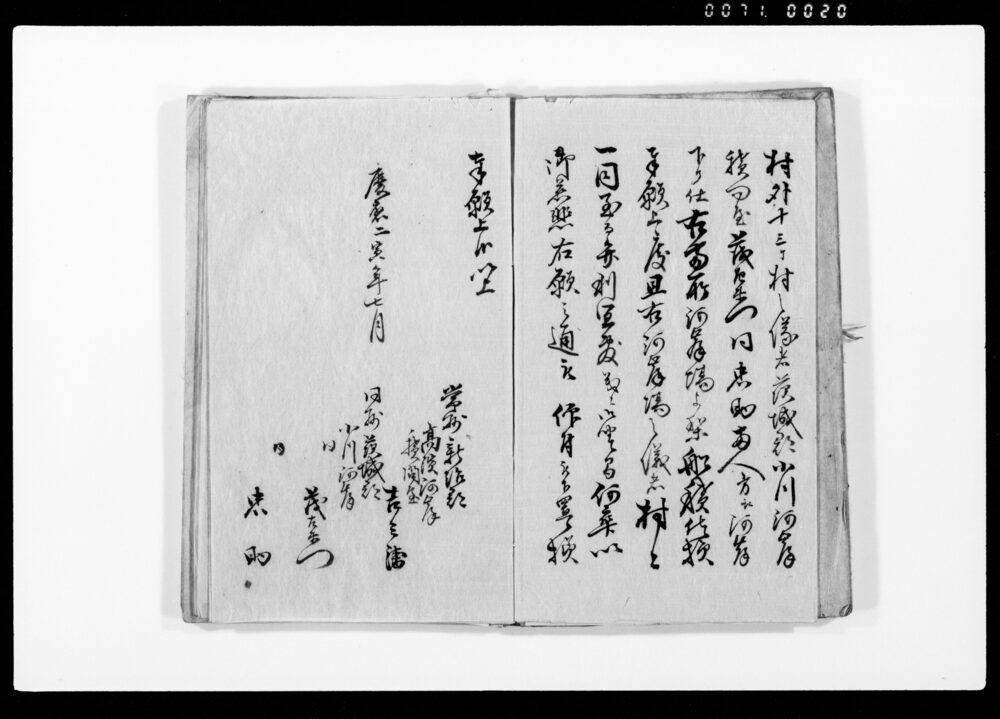 0071. 0020
村外十三ヶ村之儀者茨城郡小川河岸
積問屋茂左衛門同忠助両人方ゟ河岸
下り仕右当所河岸場ゟ船積仕様
奉願上度且右河岸場之儀者村々
一同至而弁利宜敷御座候間何卒以
御慈悲右願之通被 仰付被下置候様
奉願上候以上
慶応二寅年七月
常州新治郡
高浜河岸
積問屋
吉三浦
同州茨城郡
小川河岸
茂左衛門
同
忠助